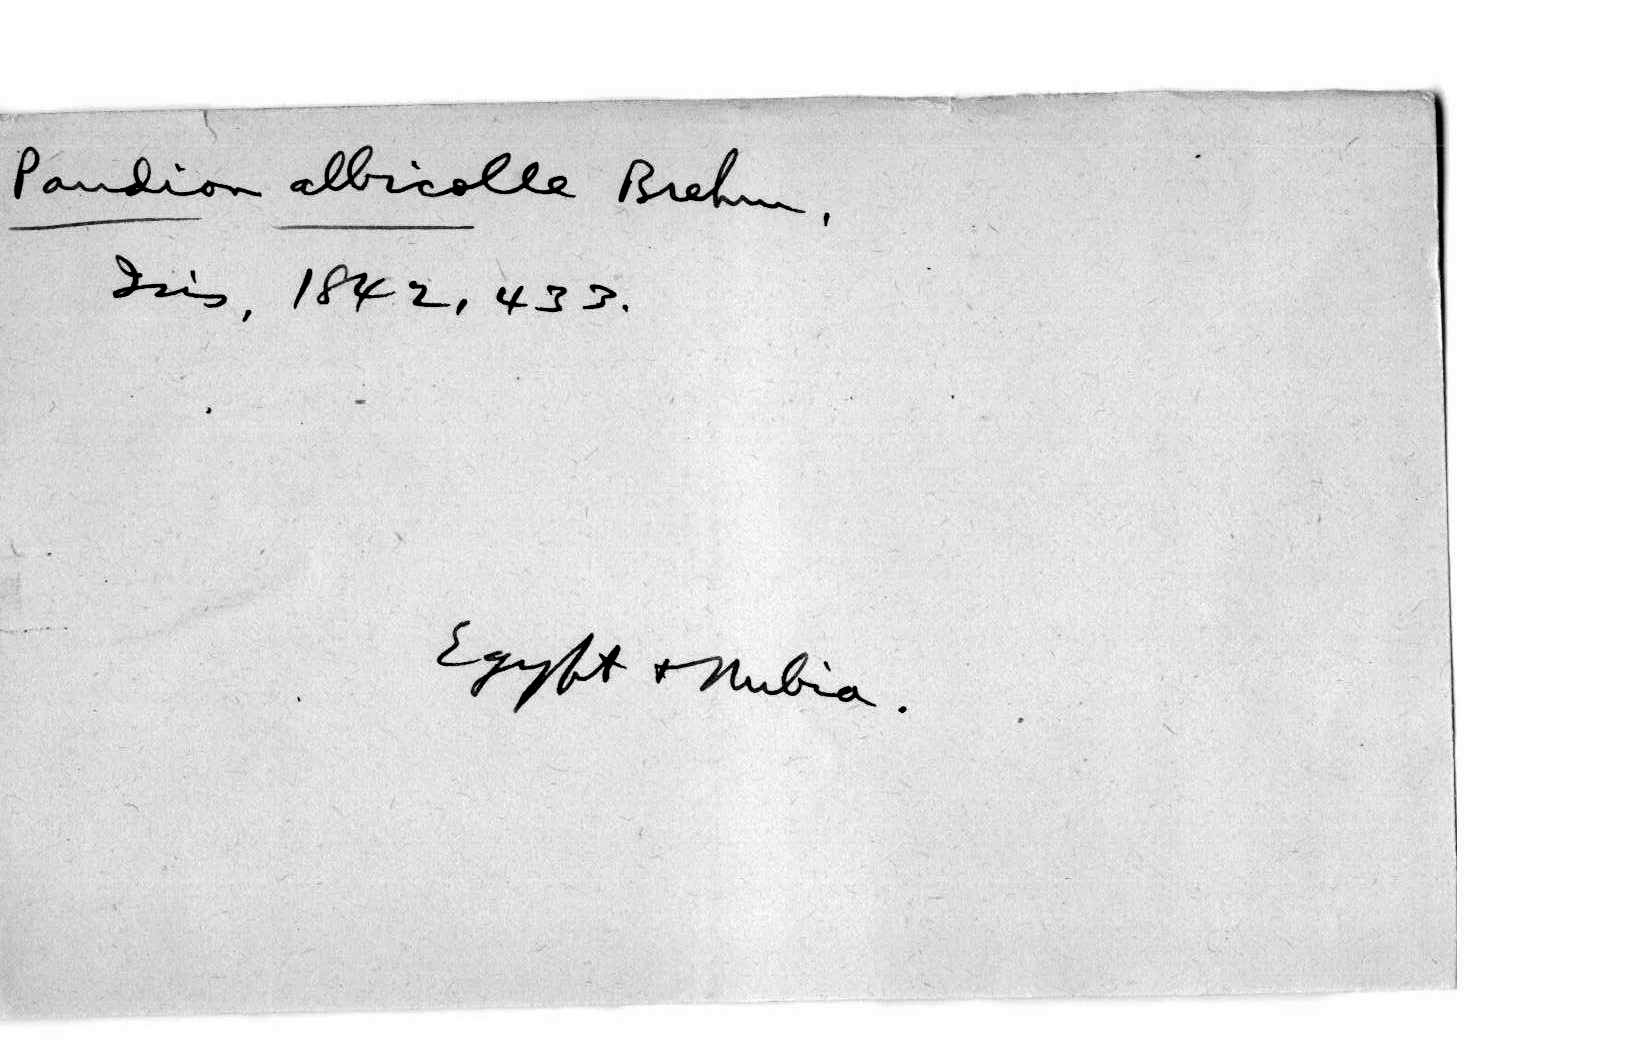 Pandion albicolle Brehm,
Isis, 1842, 433.
Egypt + Nubia.